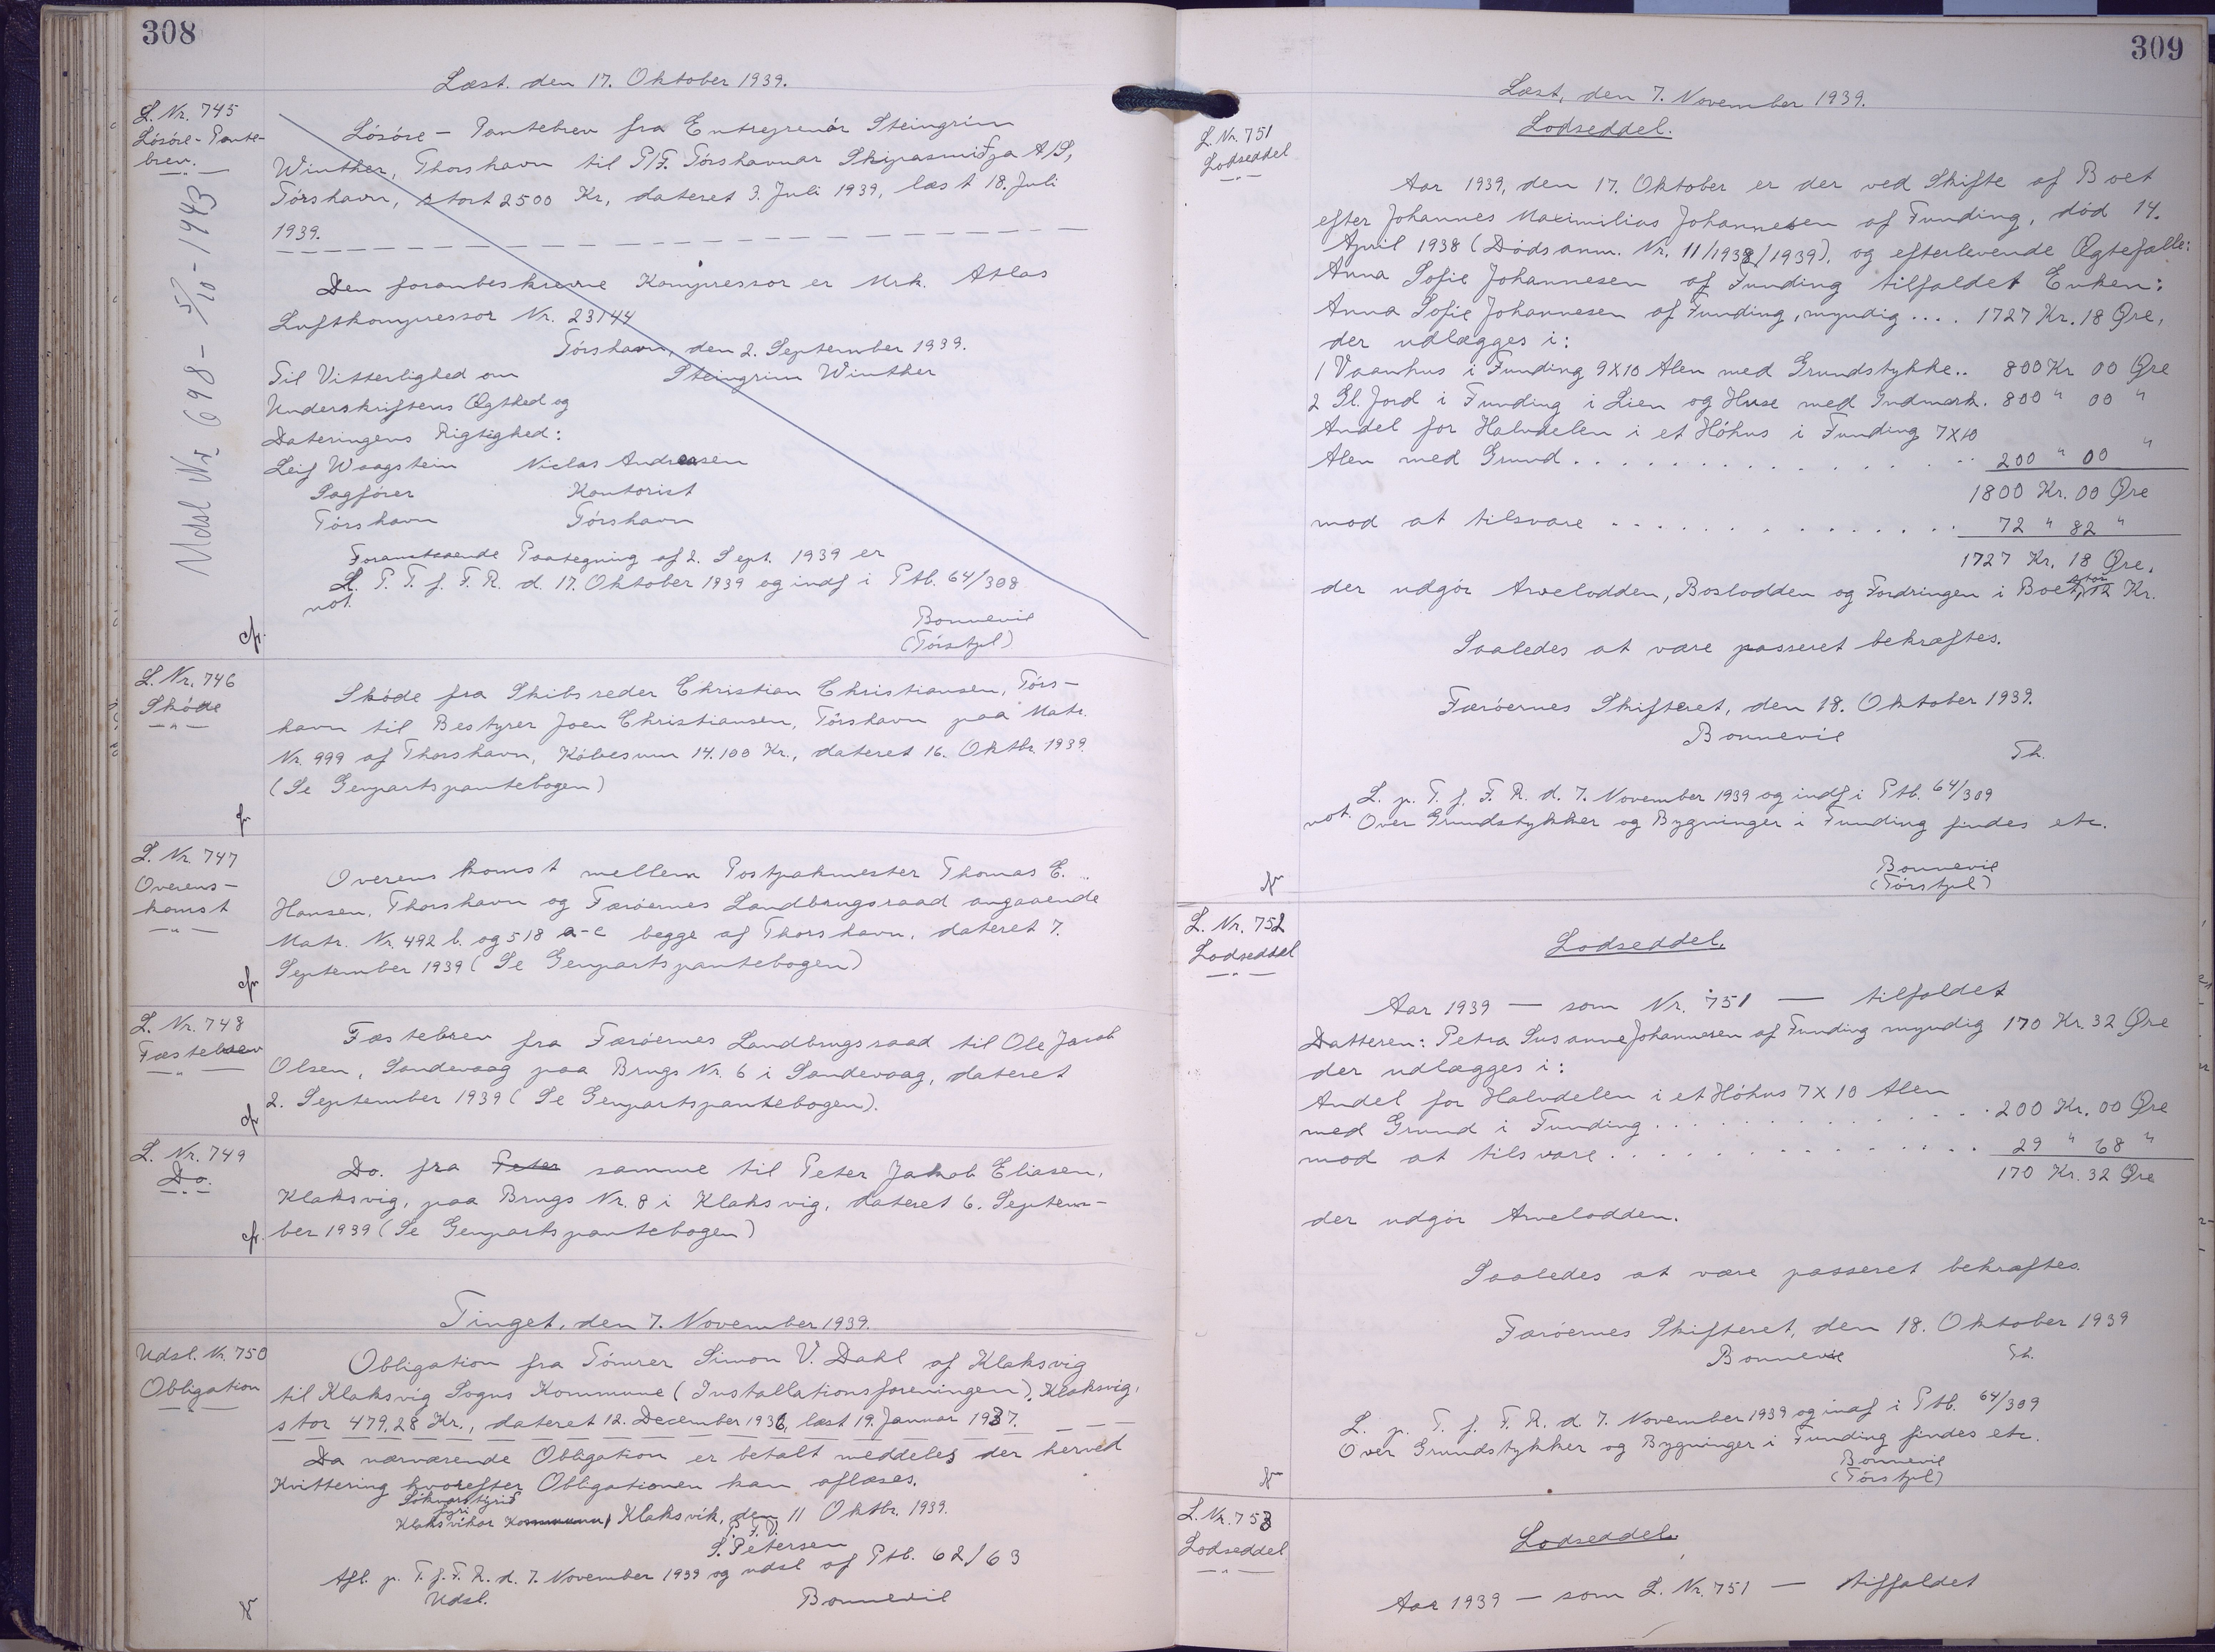 308
Læst. den 17. Oktober 1939.
L. Nr. 745
Lösöre-Pante-
brev.
Udsl Nr 698 - 5/10 - 1943
Lösöre - Pantebrev fra Entreprenör Steingrim
Winther, Thorshavn til P/F. Tórshavnar Skipasmiðja A/S,
Tórshavn, stort 2500 Kr, dateret 3. Juli 1939, læst 18. Juli
1939.
Den foranbeskrevne Kompressor er Mrk. Atlas
Luftkompressor Nr. 23144
Tórshavn, den 2. September 1939.
Til Vitterlighed om Steingrim Winther
Underskriftens Ægthed og
Dateringens Rigtighed:
Leif Waagstein Niclas Andreasen
Sagförer Kontorist
Tórshavn Tórshavn
Foranstaaende Paategning af 2. Sept. 1939 er
L. P. T. f. F. R. d. 17. Oktober 1939 og indf i Ptb. 64/308
not.
Bonnevie
(Tórstpl)
cfr.
L. Nr. 746
Sköde
Sköde fra Skibsreder Christian Christiansen, Tórs-
havn til Bestyrer Joen Christiansen, Tórshavn paa Matr.
Nr. 999 af Thorshavn, Köbesum 14.100 Kr., dateret 16. Oktbr. 1939.
(Se Genpartspantebogen)
L. Nr. 747
Overens-
komst
Overenskomst mellem Postpakmester Thomas E.
Hansen, Thorshavn og Færöernes Landbrugsraad angaaende
Matr. Nr. 492 b. og 518 a-c begge af Thorshavn, dateret 7.
September 1939 (Se Genpartspantebogen)
cfr
L. Nr. 748
Fæstebrev
Fæstebrev fra Færöernes Landbrugsraad til Ole Jacob
Olsen, Sandevaag paa Brugs Nr. 6 i Sandevaag, dateret
2. September 1939 (Se Genpartspantebogen).
cfr
L. Nr. 749
Do.
Do. fra Peter samme til Peter Jakob Eliasen,
Klaksvig, paa Brugs Nr. 8 i Klaksvig, dateret 6. Septem-
ber 1939 (Se Genpartspantebogen)
cfr.
Tinget, den 7. November 1939.
Udsl. Nr. 750
Obligation
Obligation fra Tömrer Simon V. Dahl af Klaksvig
til Klaksvig Sogns Kommune (Installationsforeningen), Klaksvig,
stor 479,28 Kr., dateret 12. December 1936, læst 19. Januar 1937.
Da nærværende Obligation er betalt meddeles der herved
Kvittering hvorefter Obligationen kan aflæses.
Sóknarstýrið
fyri
Klaksvikar Kommunu, Klaksvík, den 11 Oktbr. 1939.
P. F. V.
S. Petersen
Afl. p. T. f. F. R. d. 7. November 1939 og udsl af Ptb. 62/63
Udsl. Bonnevie
309
Læst, den 7. November 1939.
L. Nr. 751
Lodseddel
Lodseddel.
Aar 1939, den 17. Oktober er der ved Skifte af Boet
efter Johannes Maximilius Johannesen af Funding, död 14.
April 1938 (Dödsanm. Nr. 11/1938/1939), og efterlevende Ægtefælle:
Anna Sofie Johannesen af Funding tilfaldet Enken:
Anna Sofie Johannesen af Funding, myndig .... 1727 Kr. 18 Øre,
der udlægges i:
1 Vaanhus i Funding 9X10 Alen med Grundstykke.. 800 Kr 00 Øre
2 Gl. Jord i Funding i Lien og Huse med Indmark. 800 " 00 "
Andel for Halvdelen i et Höhus i Funding 7X10
Alen med Grund .............. 200 " 00 "
1800 Kr. 00 Øre
mod at tilsvare .............. 72 " 82 "
1727 Kr. 18 Øre.
der udgör Arvelodden, Boslodden og Fordringen i Boet, stor 12 Kr.
Saaledes at være passeret bekræftes.
Færöernes Skifteret, den 18. Oktober 1939.
Bonnevie
Th.
L. p. T. f. F. R. d. 7. November 1939 og indf i Ptb. 64/309
not. Over Grundstykker og Bygninger i Funding findes etc.
Bonnevie
(Tórstpl)
L. Nr. 752
Lodseddel
Lodseddel.
Aar 1939 — som Nr. 751 — tilfaldet
Datteren: Petra Susanne Johannesen af Funding myndig 170 Kr. 32 Øre
der udlægges i:
Andel for Halvdelen i et Höhus 7 X 10 Alen
med Grund i Funding .......... 200 Kr. 00 Øre
mod at tilsvare .............. 29 " 68 "
170 Kr. 32 Øre
der udgör Arvelodden.
Saaledes at være passeret bekræftes.
Færöernes Skifteret, den 18. Oktober 1939
Bonnevie Th.
L. p. T. f. F. R. d. 7. November 1939 og indf i Ptb. 64/309
Over Grundstykker og Bygninger i Funding findes etc.
Bonnevie
(Tórstpl)
L. Nr. 753
Lodseddel
Lodseddel.
Aar 1939 — som L. Nr. 751 — tilfaldet